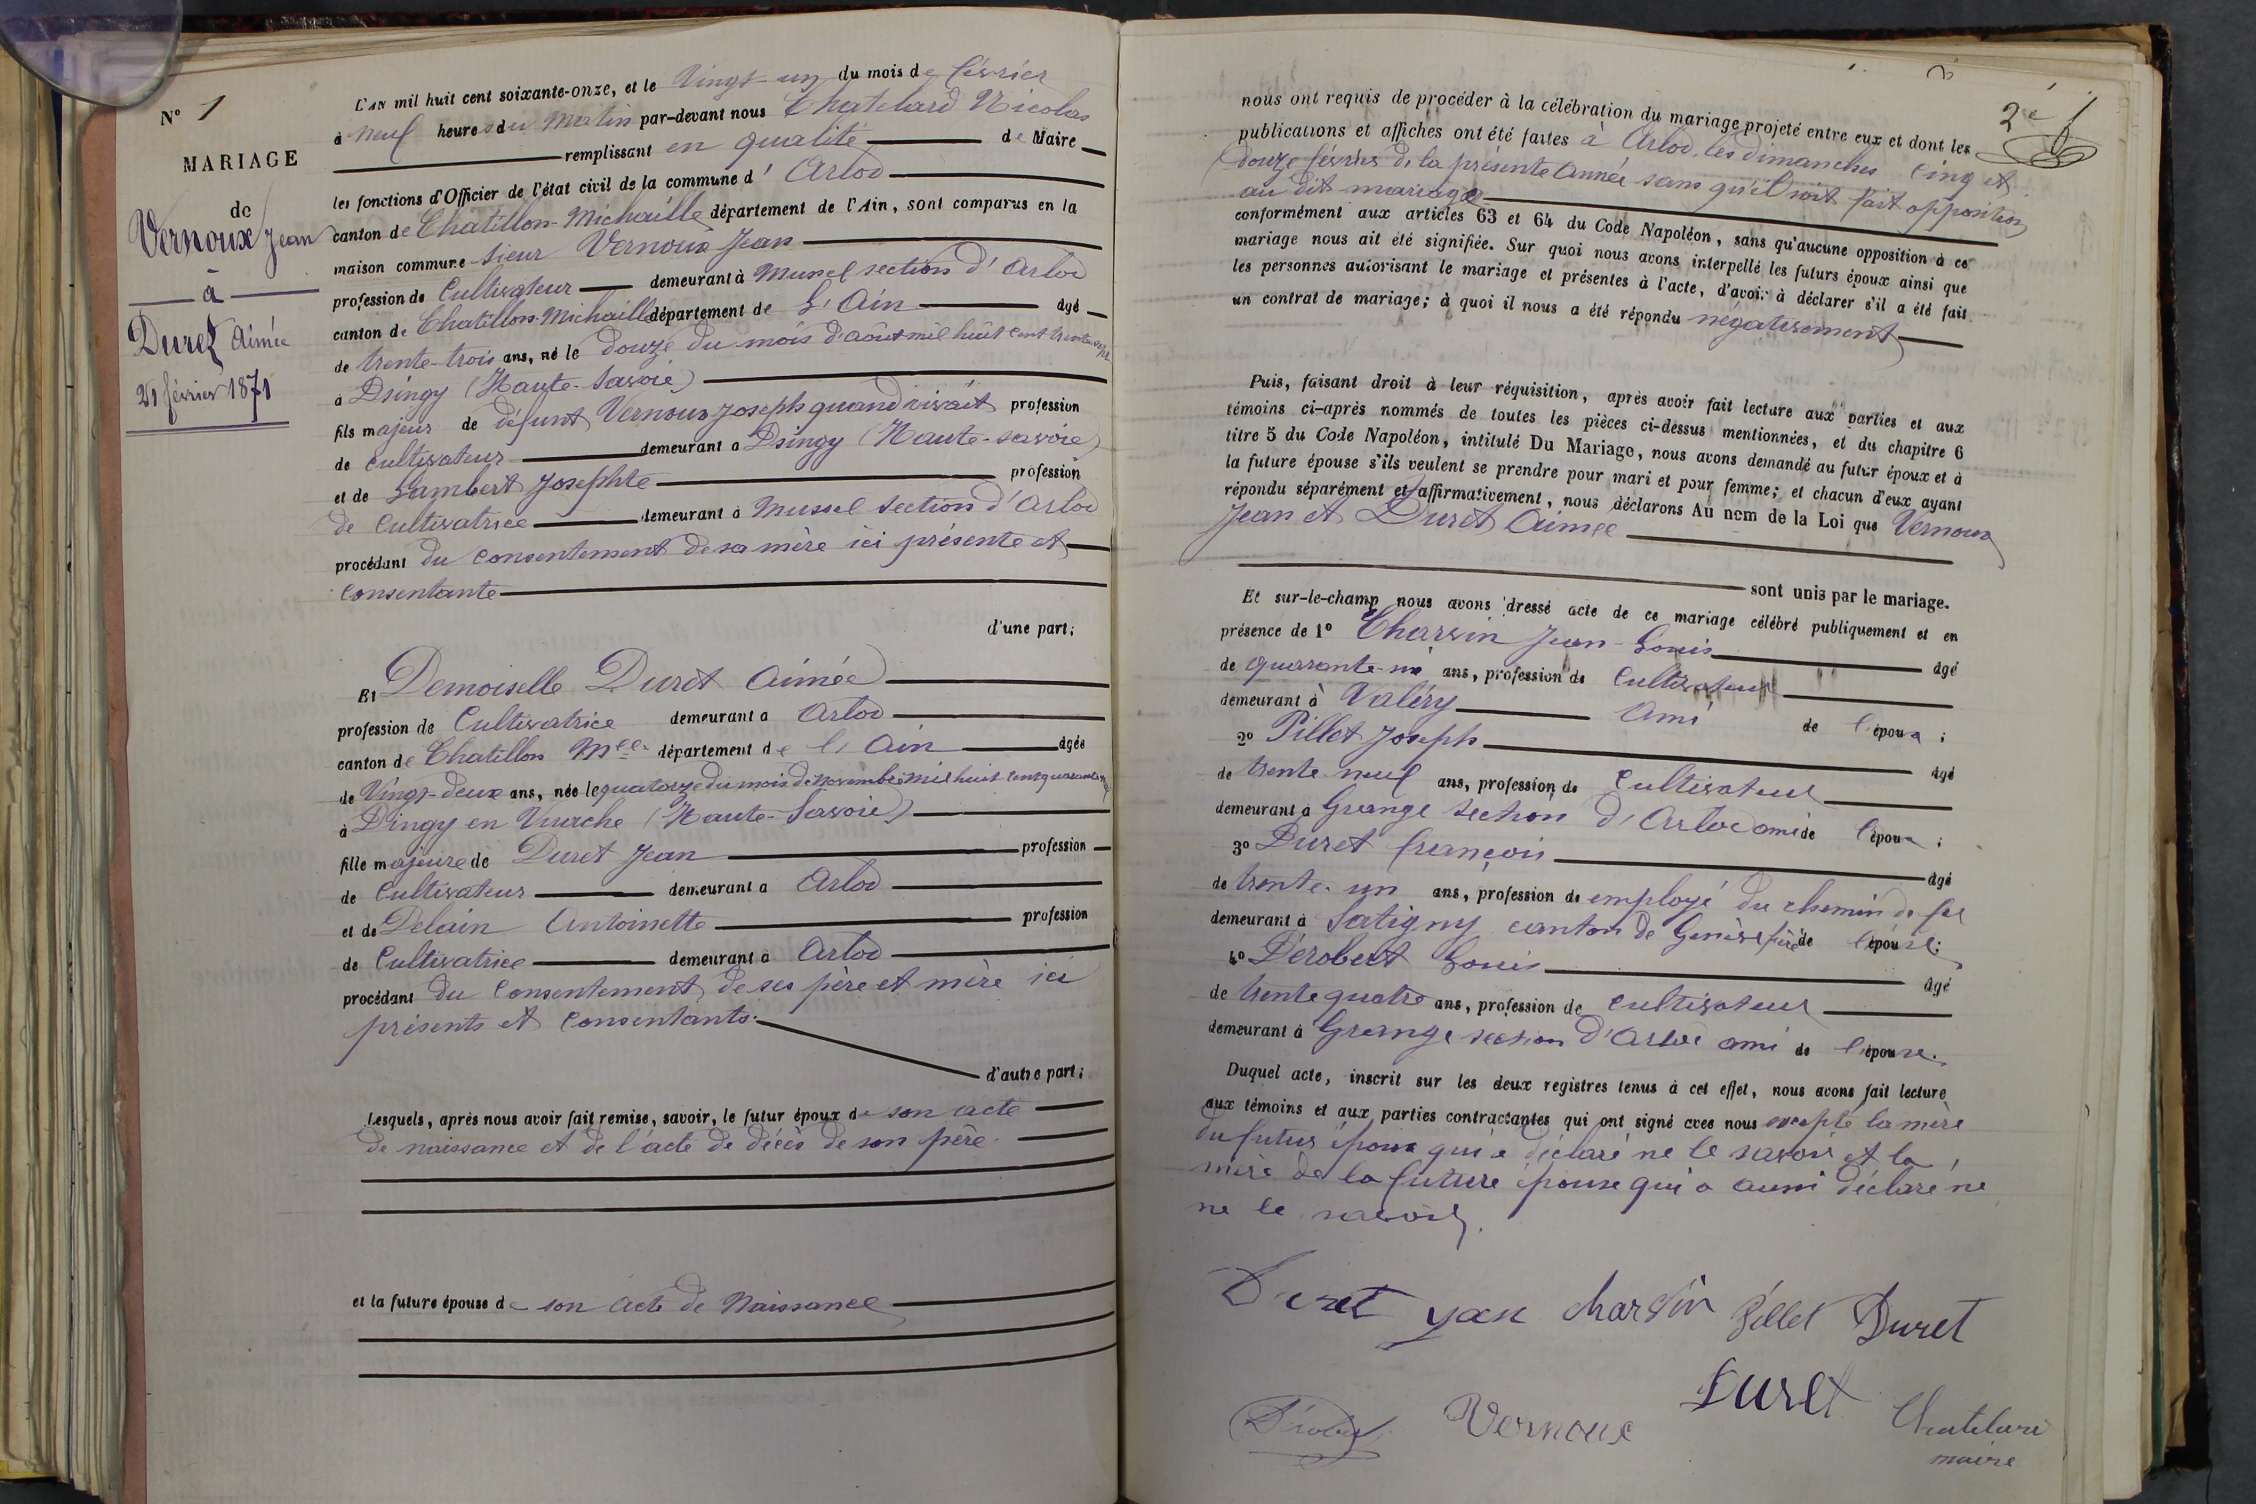 N° 1
MARIAGE
de
Vernoux Jean
à
Duret Aimée
21 février 1871
L'AN mil huit cent soixante-onze, et le Vingt-un du mois de février
à neuf heures du Matin par-devant nous Chatelard Nicolas
remplissant en qualité de Maire
les fonctions d'Officier de l'état civil de la commune d'Arlod
canton de Chatillon-Michaille département de l'Ain, sont comparus en la
maison commune sieur Vernoux Jean
profession de Cultivateur demeurant à Mussel section d'Arlod
canton de Chatillon-Michaille département de L'Ain âgé
de trente-trois ans, né le douze du mois d'août mil huit cent trente sept
à Dsingy (Haute-Savoie)
fils majeur de défunt Vernoux Joseph quand vivait profession
de cultivateur demeurant à Dsingy (Haute-Savoie)
et de Lambert Josephte profession
de cultivatrice demeurant à Mussel section d'Arlod
procédant du consentement de sa mère ici présente et
consentante
d'une part;
Et Demoiselle Duret Aimée
profession de Cultivatrice demeurant à Arlod
canton de Chatillon Mlle département de l'Ain âgée
de Vingt-deux ans, née le quatorze du mois de novembre mil huit cent quarante
à Dingy en Vuache (Haute-Savoie)
fille majeure de Duret Jean profession
de Cultivateur demeurant à Arlod
et de Delain Antoinette profession
de Cultivatrice demeurant à Arlod
procédant du consentement de ses père et mère ici
présents et consentants.
d'autre part;
Lesquels, après nous avoir fait remise, savoir, le futur époux de son acte
de naissance et de l'acte de décès de son père.
et la future épouse de son acte de Naissance
2e
nous ont requis de procéder à la célébration du mariage projeté entre eux et dont les
publications et affiches ont été faites à Arlod, les dimanches cinq et
douze février de la présente Année sans qu'il soit fait opposition
au dit mariage
conformément aux articles 63 et 64 du Code Napoléon, sans qu'aucune opposition à ce
mariage nous ait été signifiée. Sur quoi nous avons interpellé les futurs époux ainsi que
les personnes autorisant le mariage et présentes à l'acte, d'avoir à déclarer s'il a été fait
un contrat de mariage; à quoi il nous a été répondu négativement
Puis, faisant droit à leur réquisition, après avoir fait lecture aux parties et aux
témoins ci-après nommés de toutes les pièces ci-dessus mentionnées, et du chapitre 6
titre 5 du Code Napoléon, intitulé Du Mariage, nous avons demandé au futur époux et à
la future épouse s'ils veulent se prendre pour mari et pour femme; et chacun d'eux ayant
répondu séparément et affirmativement, nous déclarons Au nom de la Loi que Vernoux
Jean et Duret Aimée
sont unis par le mariage.
Et sur-le-champ nous avons dressé acte de ce mariage célébré publiquement et en
présence de 1° Charvin Jean-Louis âgé
de quarante ans, profession de Cultivateur
demeurant à Valéry Ami de l'époux;
2° Pillet Joseph âgé
de trente-neuf ans, profession de Cultivateur
demeurant à Grange section d'Arlod ami de l'époux;
3° Duret françois âgé
de trente-un ans, profession de employé du chemin de fer
demeurant à Satigny canton de Genève frère de l'épouse;
4° Dérobert Louis âgé
de trente quatre ans, profession de cultivateur
demeurant à Grange section d'Arlod ami de l'épouse.
Duquel acte, inscrit sur les deux registres tenus à cet effet, nous avons fait lecture
aux témoins et aux parties contractantes qui ont signé avec nous excepté la mère
du futur époux qui a déclaré ne le savoir et la
mère de la future épouse qui a aussi déclaré ne
ne le savoir.
Duret yan Charvin Pillet Duret
Duret
Vernoux Chatelard
maire